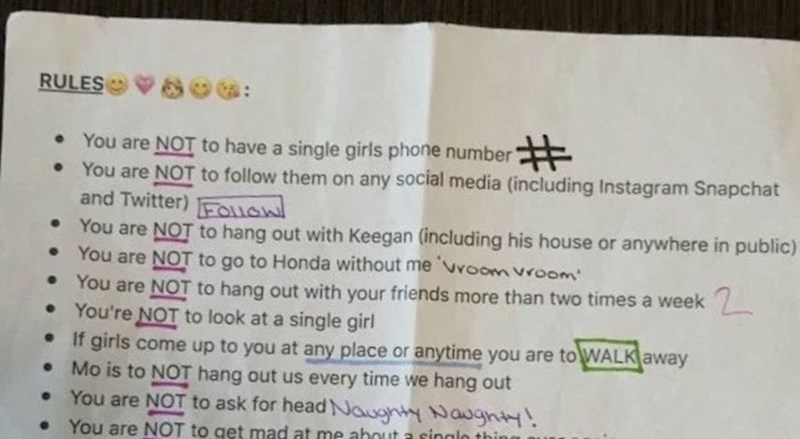 RULES😊💗👸😋😘:
• You are NOT to have a single girls phone number #
• You are NOT to follow them on any social media (including Instagram Snapchat
and Twitter) Follow
• You are NOT to hang out with Keegan (including his house or anywhere in public)
• You are NOT to go to Honda without me 'vroom vroom'
• You are NOT to hang out with your friends more than two times a week 2
• You're NOT to look at a single girl
• If girls come up to you at any place or anytime you are to WALK away
• Mo is to NOT hang out us every time we hang out
• You are NOT to ask for head Naughty Naughty!
• You are NOT to get mad at me about a single thing